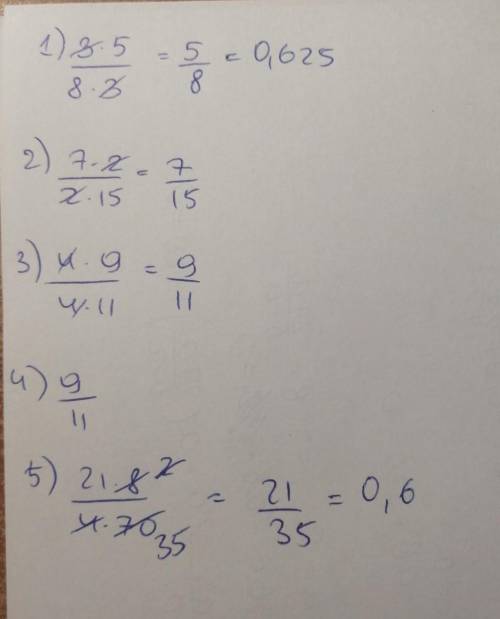 1) 3·5/8·3 = 5/8 = 0,625
2) 7·2/2·15 = 7/15
3) 4·9/4·11 = 9/11
4) 9/11
5) 21·8 2/4·70 35 = 21/35 = 0,6